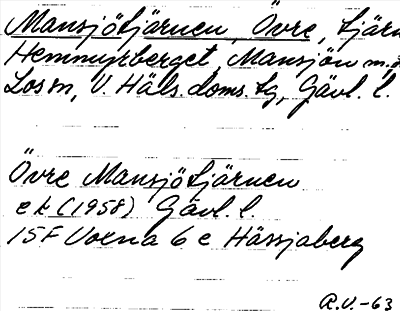 Mansjötjärnen, Övre, tjärn
Hemmyrberget, Mansjön m.fl.
Los sn, V. Häls. doms. tg, Gävl. l.
Övre Mansjötjärnen
ek (1958) Gävl. l.
15F Voxna 6 e Hässjaberg
R.V.-63